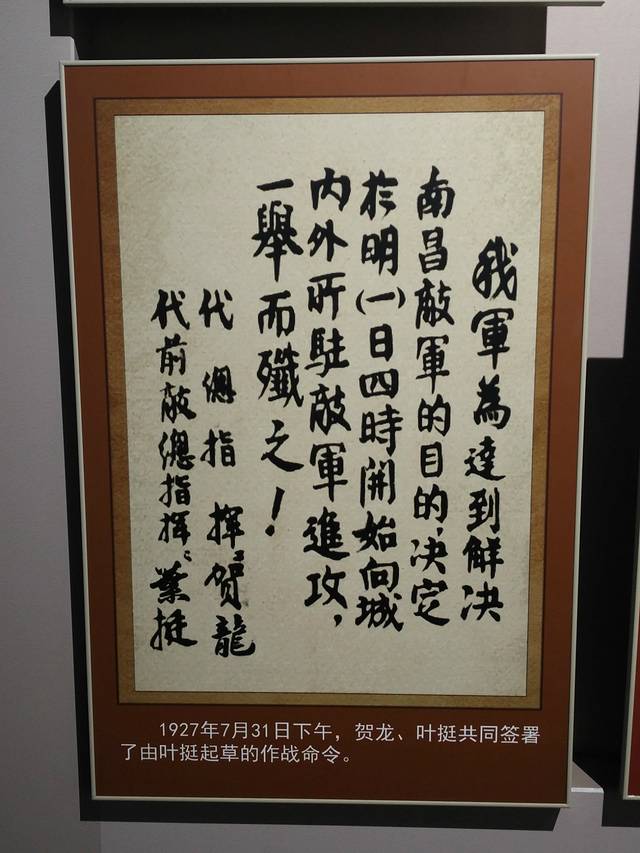 我軍為達到解決
南昌敵軍的目的，决定
於明(一)日四時開始向城
內外所駐敵軍進攻，
一舉而殲之！
代總指揮：賀龍
代前敵總指揮：葉挺
1927年7月31日下午，贺龙、叶挺共同签署
了由叶挺起草的作战命令。